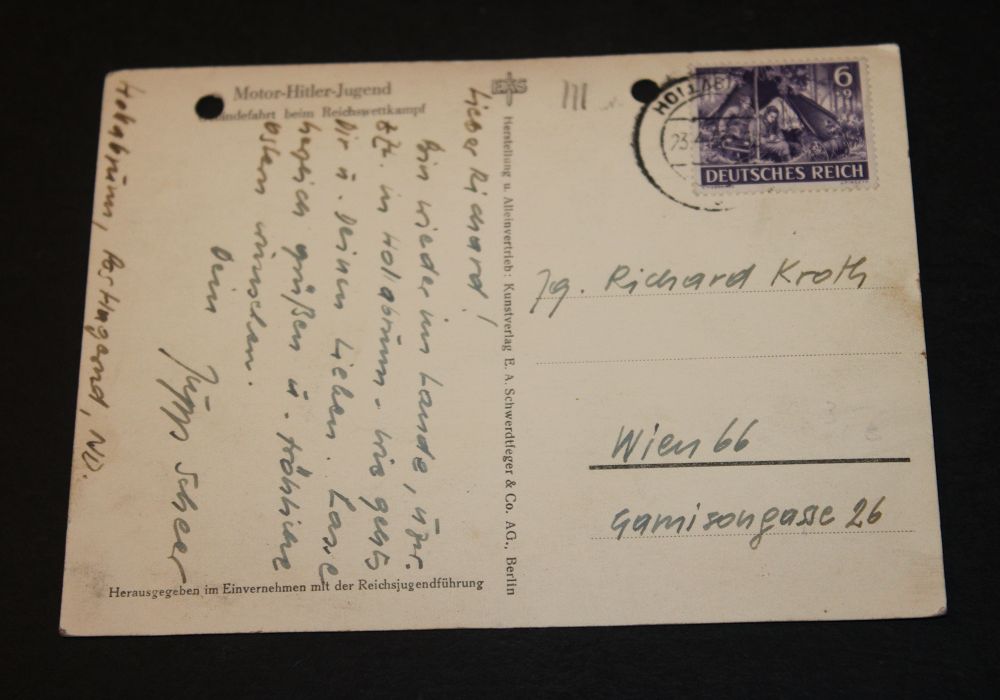 Motor-Hitler-Jugend
Geländefahrt beim Reichswettkampf
Lieber Richard!
Bin wieder im Lande, nur
in Hollabrunn. Wie gehts
Dir u. Deinen Lieben. Lasse
herzlich grüßen u. fröhliche
Ostern wünschen.
Dein
Scheer
Hollabrunn, ND.
Herausgegeben im Einvernehmen mit der Reichsjugendführung
EAS
Herstellung u. Alleinvertrieb: Kunstverlag E. A. Schwerdtfeger & Co. AG., Berlin
HOLLAB
23.4
6
DEUTSCHES REICH
Jg. Richard Kroth
Wien 66
Garnisongasse 26